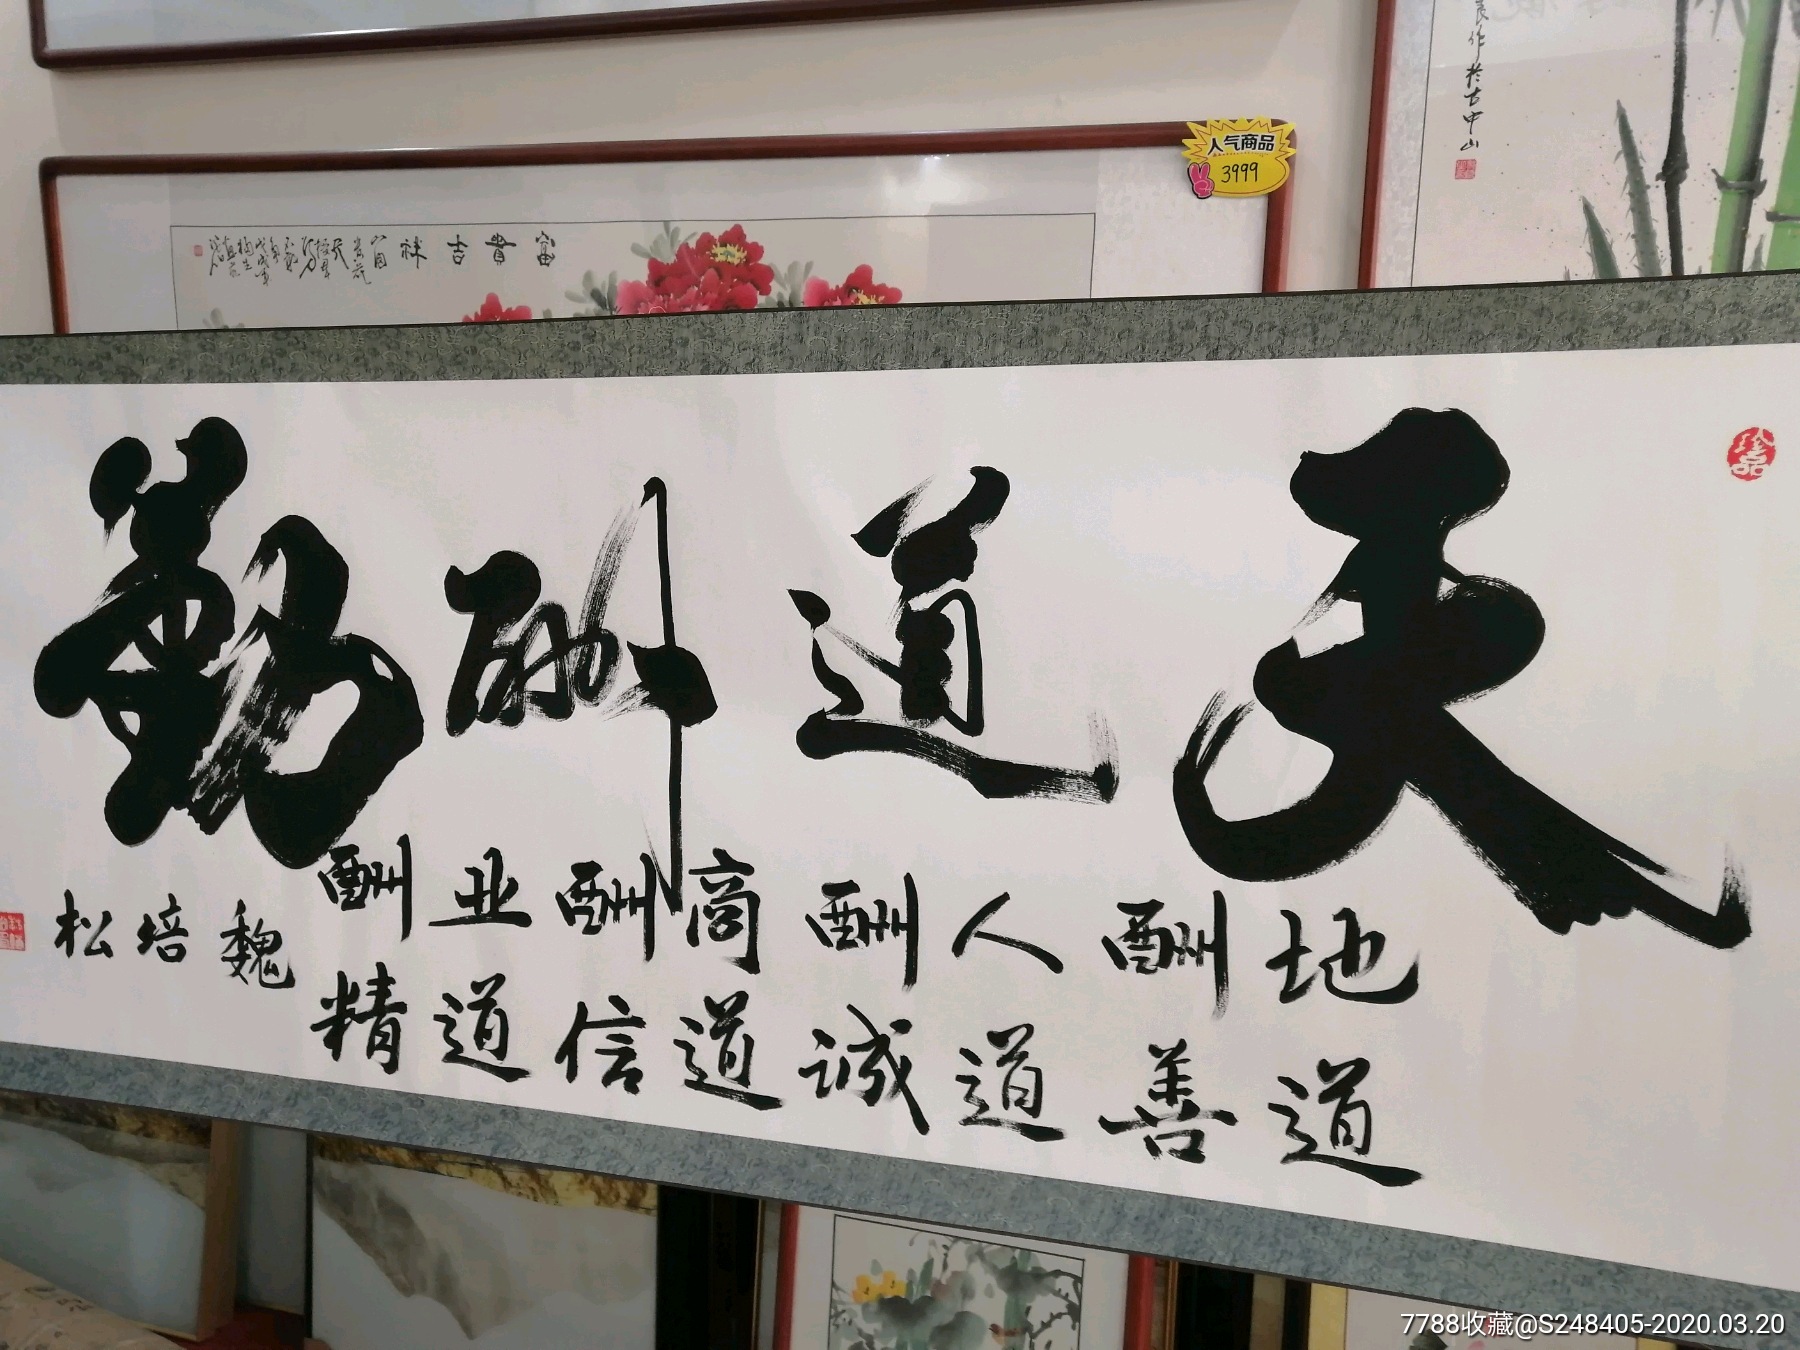 人气商品
3999
作於古中山
富貴吉祥
珍品
天道酬勤
地道酬善
人道酬诚
商道酬信
业道酬精
魏培松
7788收藏@S248405-2020.03.20